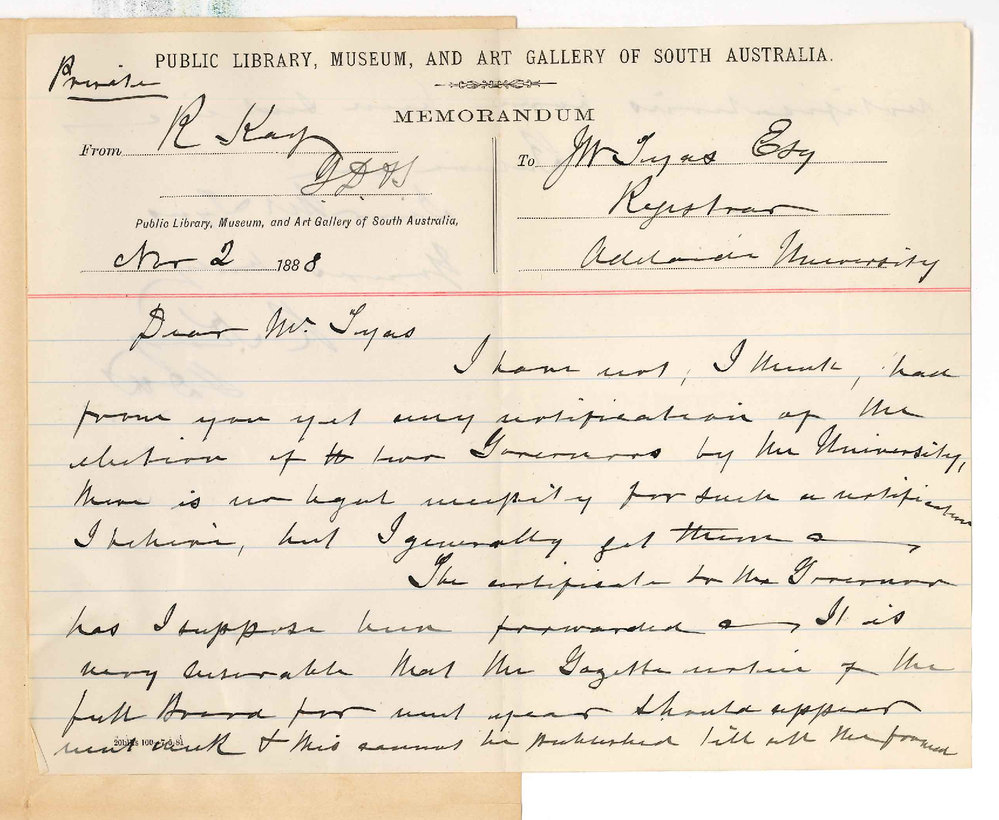 PUBLIC LIBRARY, MUSEUM, AND ART GALLERY OF SOUTH AUSTRALIA.
Private
MEMORANDUM
From R Kay
To JW Tyas Esq
G.D.&S
Registrar
Public Library, Museum, and Art Gallery of South Australia,
Nov 2 1888
Adelaide University
Dear Mr. Tyas
I have not, I think, had
from you yet any notification of the
election of two Governors by the University,
there is no legal necessity for such a notification
I believe, but I generally get them
The certificate to the Governor
has I suppose been forwarded It is
very desirable that the Gazette notice of the
full Board for next year should appear
next week & this cannot be published till all the formed